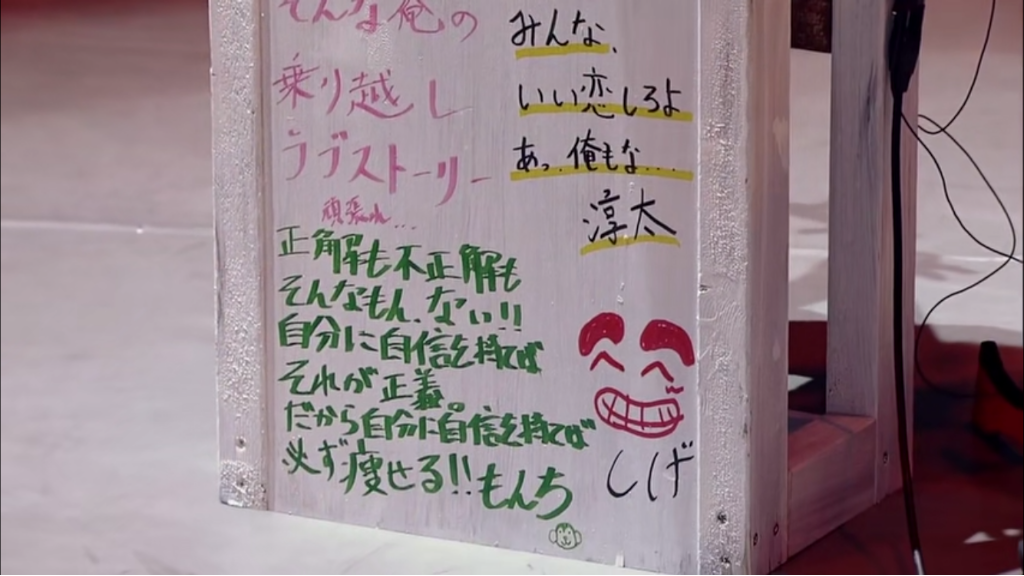 そんな俺の
乗り越し
ラブストーリー
頑張れ...
みんな、
いい恋しろよ
あっ、俺もな...
淳太
正解も不正解も
そんなもん、ない!!
自分に自信を持てば
それが正義。
だから自分に自信を持てば
必ず痩せる!!もんち
しげ